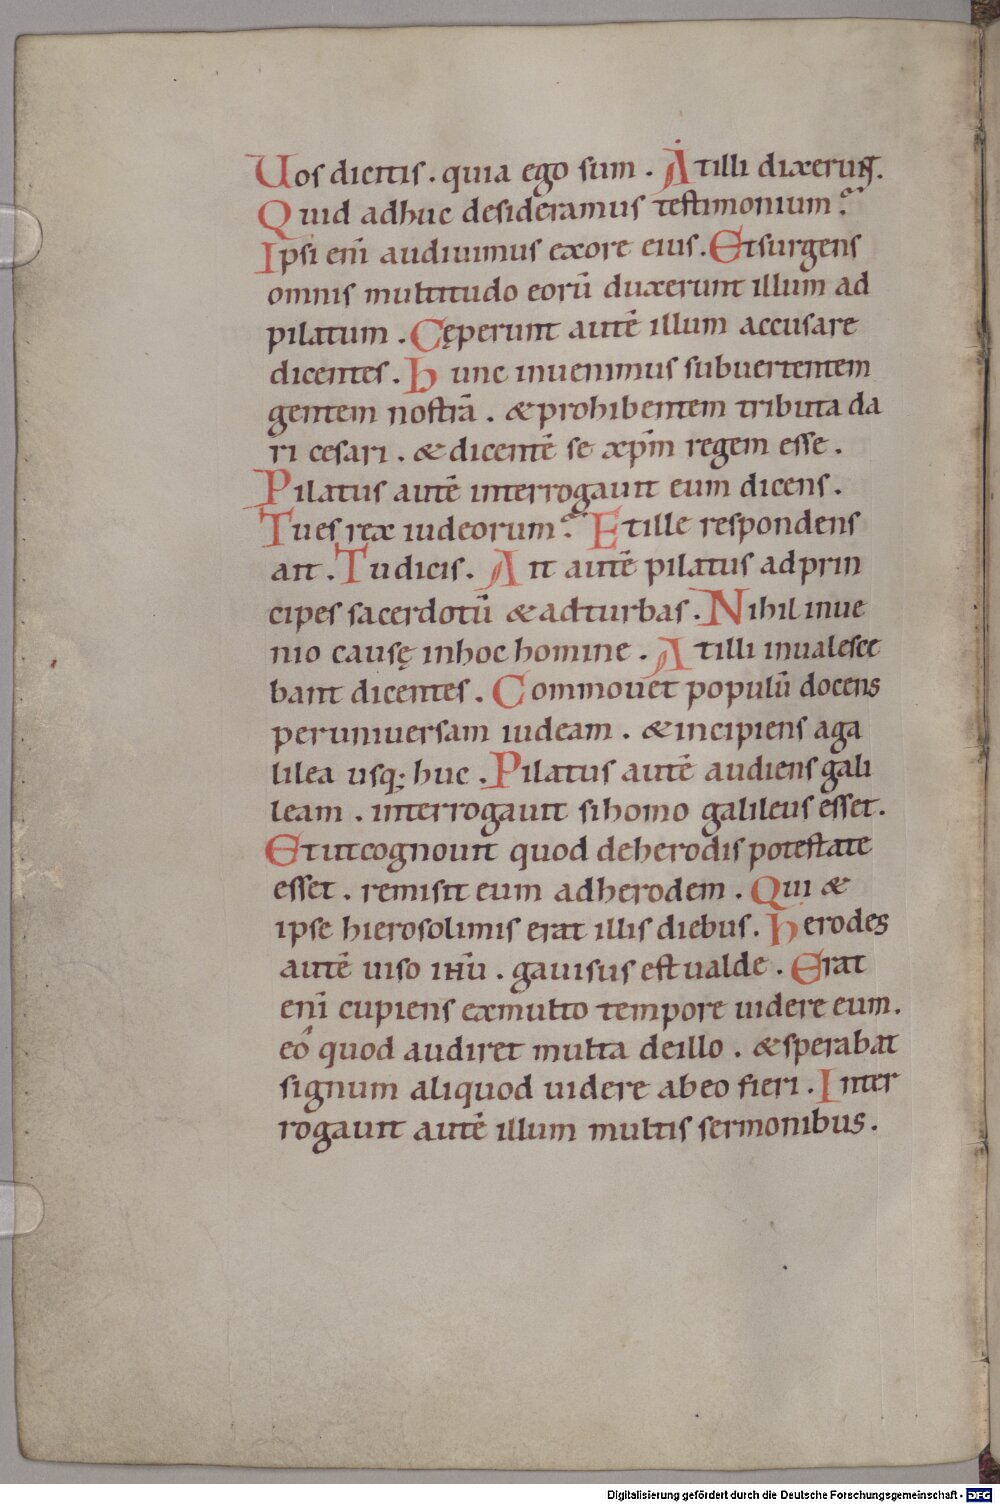 Uos dicitis. quia ego sum. At illi dixerunt.
Quid adhuc desideramus testimonium?
Ipsi eni̅ audiuimus exore eius. Et surgens
omnis multitudo eoru̅ duxerunt illum ad
pilatum. Cęperunt aute̅ illum accusare
dicentes. hunc inuenimus subuertentem
gentem nostra̅. & prohibentem tributa da
ri cesari. & dicente̅ se xp̅m regem esse.
Pilatus aute̅ interrogauit eum dicens.
Tu es rex iudeorum? Et ille respondens
ait. Tu dicis. Ait aute̅ pilatus ad prin
cipes sacerdotu̅ & ad turbas. Nihil inue
nio causę inhoc homine. At illi inualesce
bant dicentes. Commouet populu̅ docens
per uniuersam iudeam. & incipiens aga
lilea usq; huc. Pilatus aute̅ audiens gali
leam. interrogauit si homo galileus esset.
Et ut cognouit quod deherodis potestate
esset. remisit eum adherodem. Qui &
ipse hierosolimis erat illis diebus. herodes
aute̅ uiso ihu̅. gauisus est ualde. Erat
eni̅ cupiens exmulto tempore uidere eum.
eo̅ quod audiret multa deillo. & sperabat
signum aliquod uidere abeo fieri. Inter
rogauit aute̅ illum multis sermonibus.
Digitalisierung gefördert durch die Deutsche Forschungsgemeinschaft - DFG